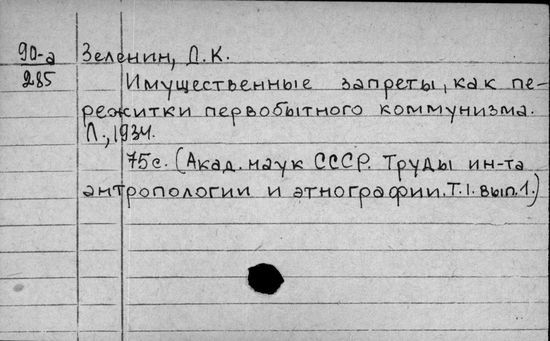 90-а Зеленин, Д.К.
285 Имущественные запреты, как пе-
режитки первобытного коммунизма.
Л., 1934.
75с. (Акад. наук СССР. Труды ин-та
антропологии и этнографии. Т.I. вып.1.)